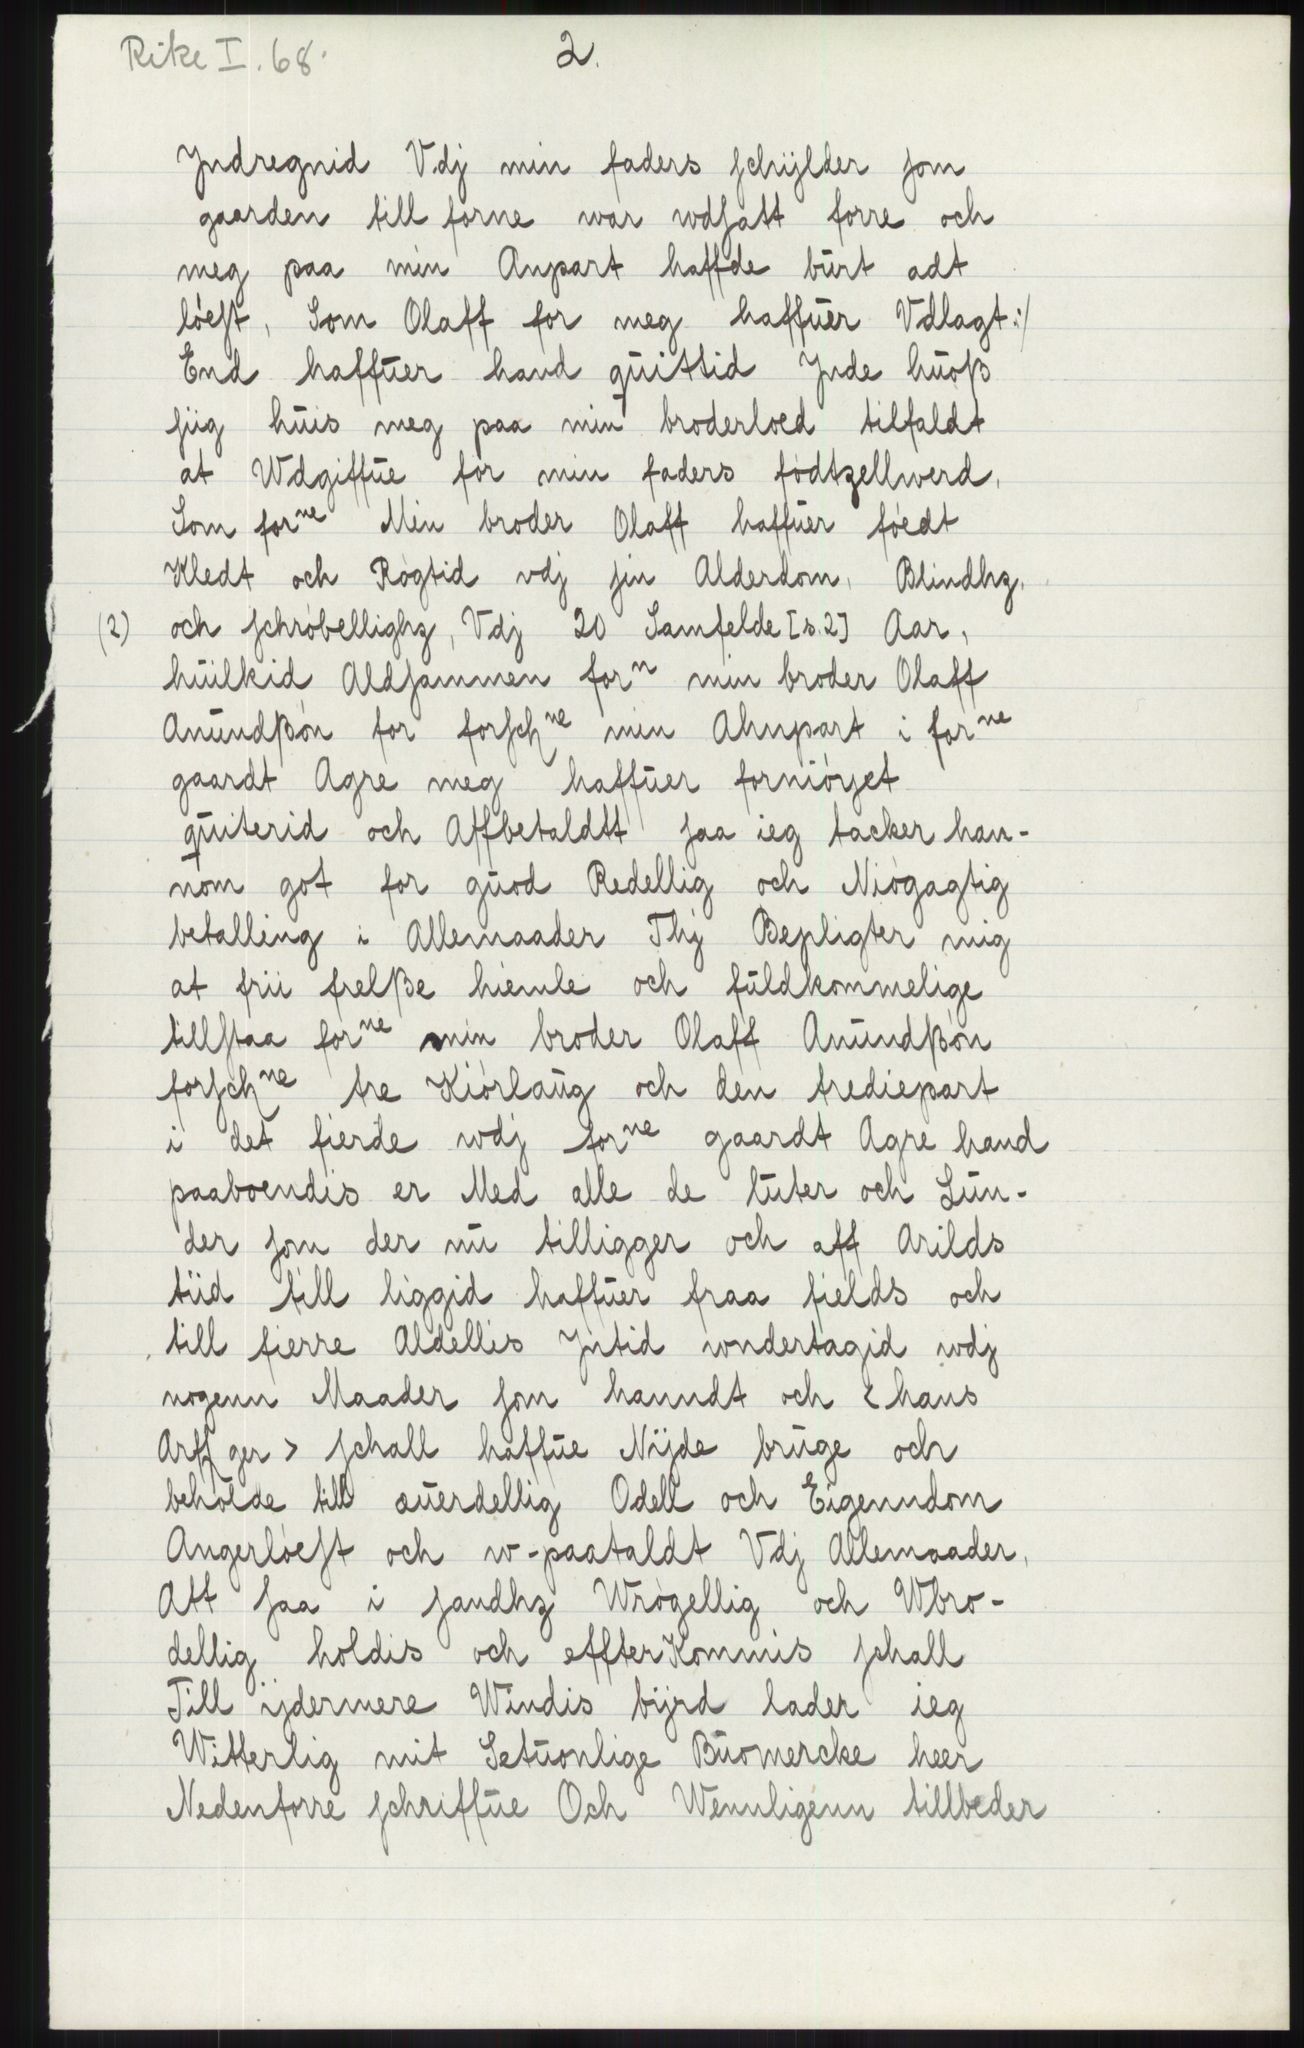 Rike I. 68.
2.
Jndregnid Vdj min faders schÿlder som
gaarden till forne war wdsatt forre och
meg paa min Anpart haffde burt adt
löest, Som Olaff for meg haffuer Vdlagt:/
End haffuer hand quittid Jnde huoß
siig huis meg paa min broderloed tilfaldt
at Wdgiffue for min faders födtzellwerd,
Som forne Min broder Olaff haffuer föedt
Kledt och Rögtid vdj sin Alderdom, Blindhz,
(2) och schröbellighz, Vdj 20 Samfelde [s.2] Aar,
huilkid Aldsammen forn min broder Olaff
Anundßön for forschne min Ahnpart i forne
gaardt Agre meg haffuer forniöyet
quiterid och Affbetaldtt saa ieg tacker han-
nom got for guod Redellig och Niögagtig
betalling i Allemaader Thj Bepligter mig
at frii frelße hiemle och fuldkommelige
tillstaa forne min broder Olaff Anundßön
forschne tre Kiörlaug och den trediepart
i det fierde wdj forne gaardt Agre hand
paaboendis er Med alle de luter och Lun-
der som der nu tilligger och aff Arilds
tiid till liggid haffuer fraa fields och
till fierre Aldellis Jntid wndertagid wdj
nogenn Maader som hanndt och < hans
Arffger > schall haffue Nÿde bruge och
beholde till æuerdellig Odell och Eigenndom
Angerlöest och w-paataldt Vdj Allemaader,
Att saa i sandhz Wrögellig och Wbrö-
dellig holdis och effterKommis schall
Till ÿdermere Windis bÿrd lader ieg
Witterlig mit Setuonlige Buomercke heer
Nedenforre schriffue Och Wennligenn tillbeder